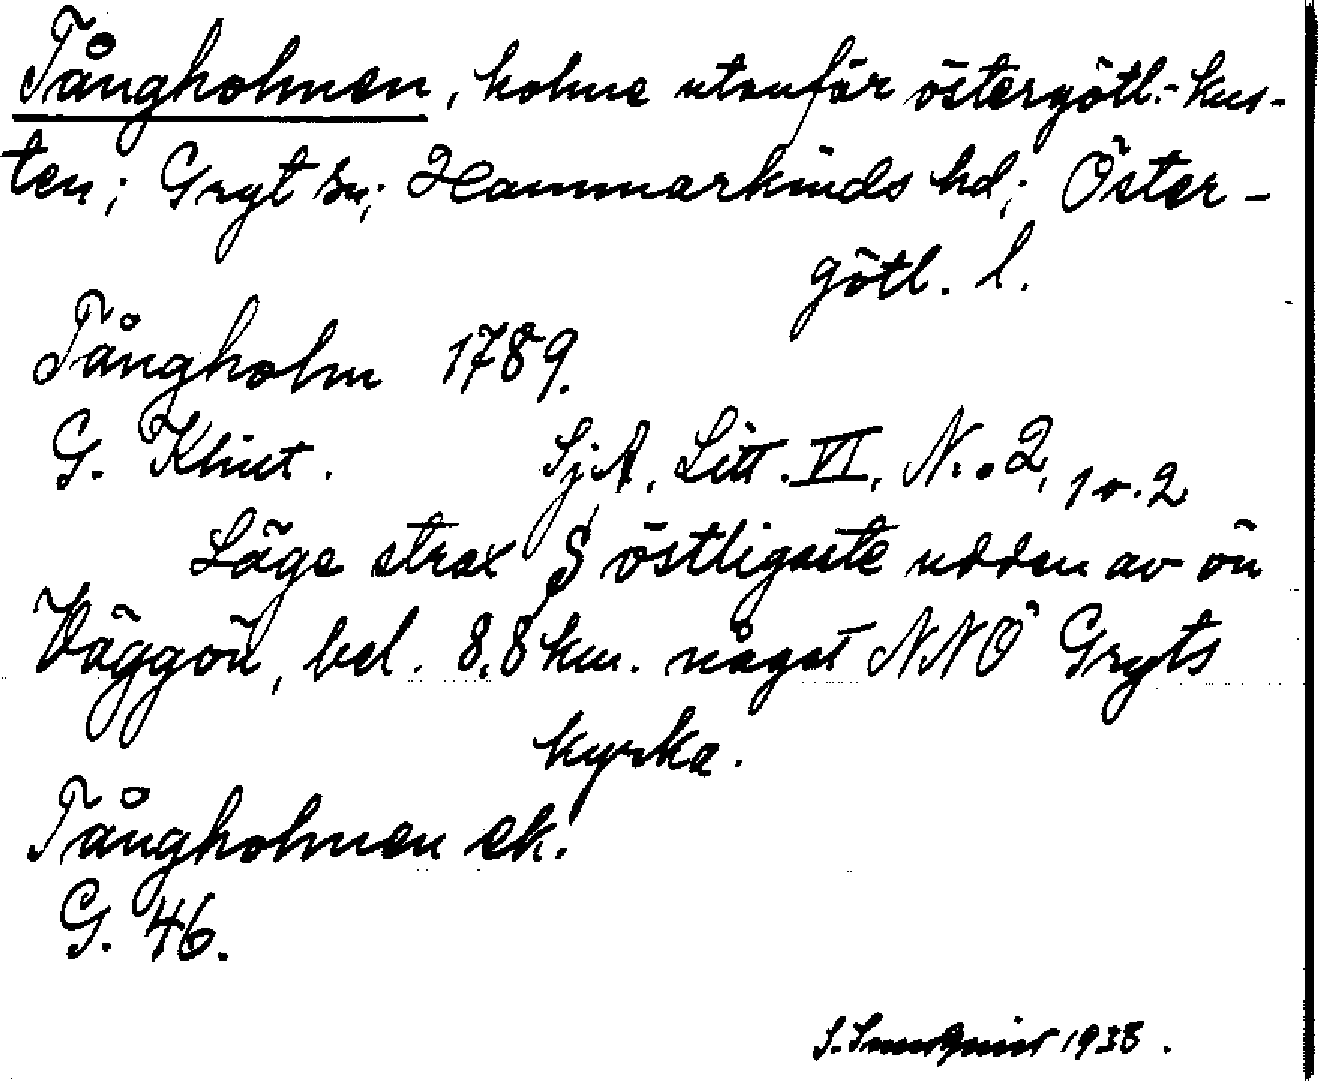 Tångholmen, holme utanför östergötl.-kus-
ten; Gryt sn; Hammarkinds hd; Öster-
götl. l.
Tångholm 1789.
G. Klint. SjA, Litt. VI, N:o 2, 1 o. 2
Läge strax S östligaste udden av ön
Väggön, bel. 8,8 km. något NNÖ Gryts
kyrka.
Tångholmen ek.
G. 46.
S. 1938.